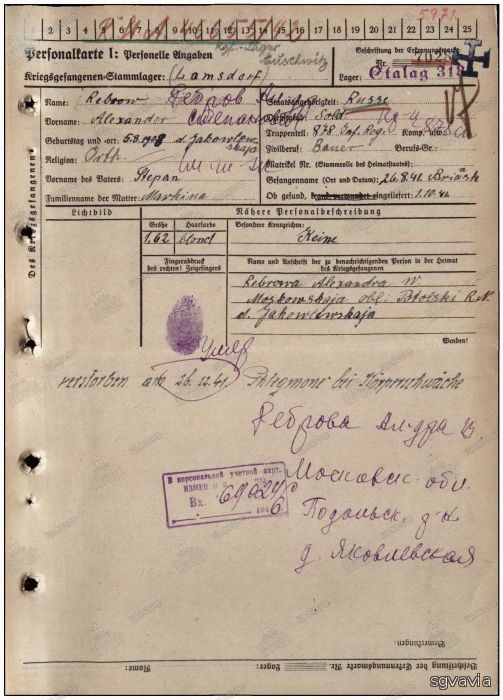 5971.
1 2 3 4 5 6 7 8 9 10 11 12 13 14 15 16 17 18 19 20 21 22 23 24 25
Personalkarte I: Personelle Angaben
Beschriftung der Erkennungsmarke
Kriegsgefangenen-Stammlager: (Lamsdorf)
Nr.
Lager: Stalag 318
Des Kriegsgefangenen
Name: Rebrow Ребров
Staatsangehörigkeit: Russe
Vorname: Alexander
Dienstgrad: Sold
Truppenteil: 878 Inf. Reg. Komp. usw.:
Geburtstag und -ort: 5.8.1908 d. Jakowlewskaja
Zivilberuf: Bauer Berufs-Gr.:
Religion: Orth.
Matrikel Nr. (Stammrolle des Heimatstaates):
Vorname des Vaters: Stepan
Gefangennahme (Ort und Datum): 26.8.41. Briansk
Familienname der Mutter:
Ob gesund, krank, verwundet eingeliefert: 1.10.41.
Lichtbild
Nähere Personalbeschreibung
Größe Haarfarbe Besondere Kennzeichen:
1,62 blond Keine
Fingerabdruck
des rechten! Zeigefingers
Name und Anschrift der zu benachrichtigenden Person in der Heimat
des Kriegsgefangenen
Rebrowa Alexandra W
Moskowskaja obl.
d. Jakowlewskaja
Wenden!
Умер
verstorben am 26.12.41. Phlegmone bei Körperschwäche
Реброва Ал-дра В
В персональной учетной карт.
Вх.
Московск. обл.
Подольск. р-н
д. Яковлевская
Bemerkungen:
Beschriftung der Erkennungsmarke Nr. Lager: Name:
sgvavia